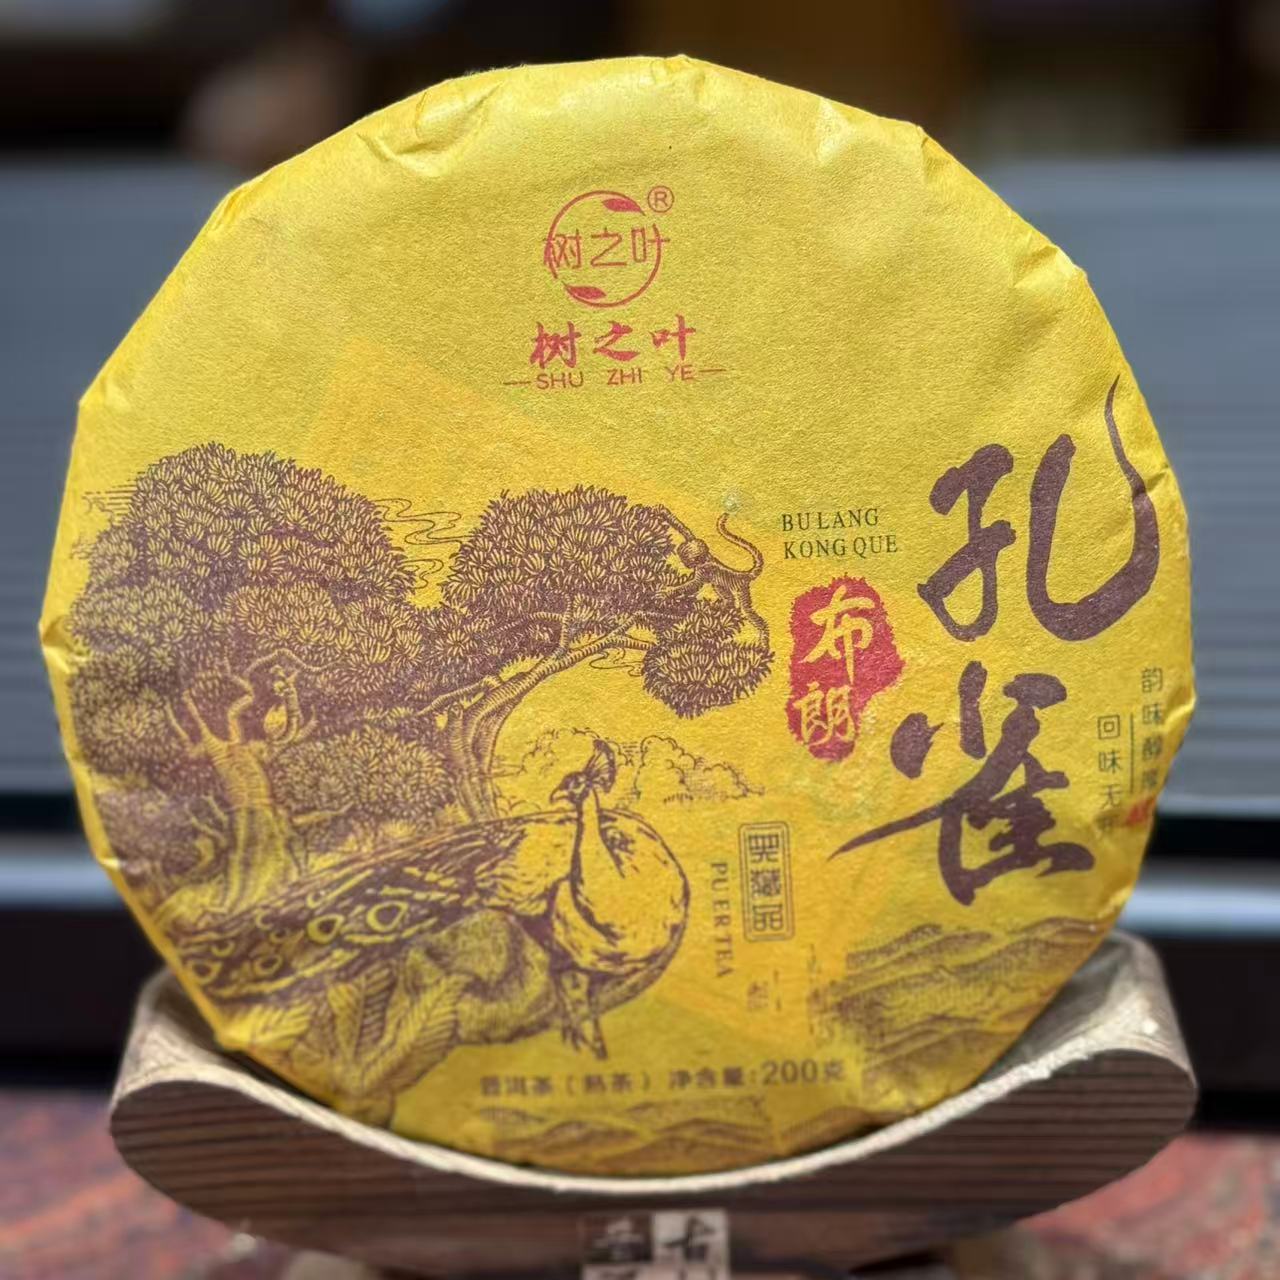 树之叶®
树之叶
SHU ZHI YE
BULANG
KONG QUE
孔雀
布朗
韵味醇厚
回味无
PUER TEA
普洱茶（熟茶）净含量：200克